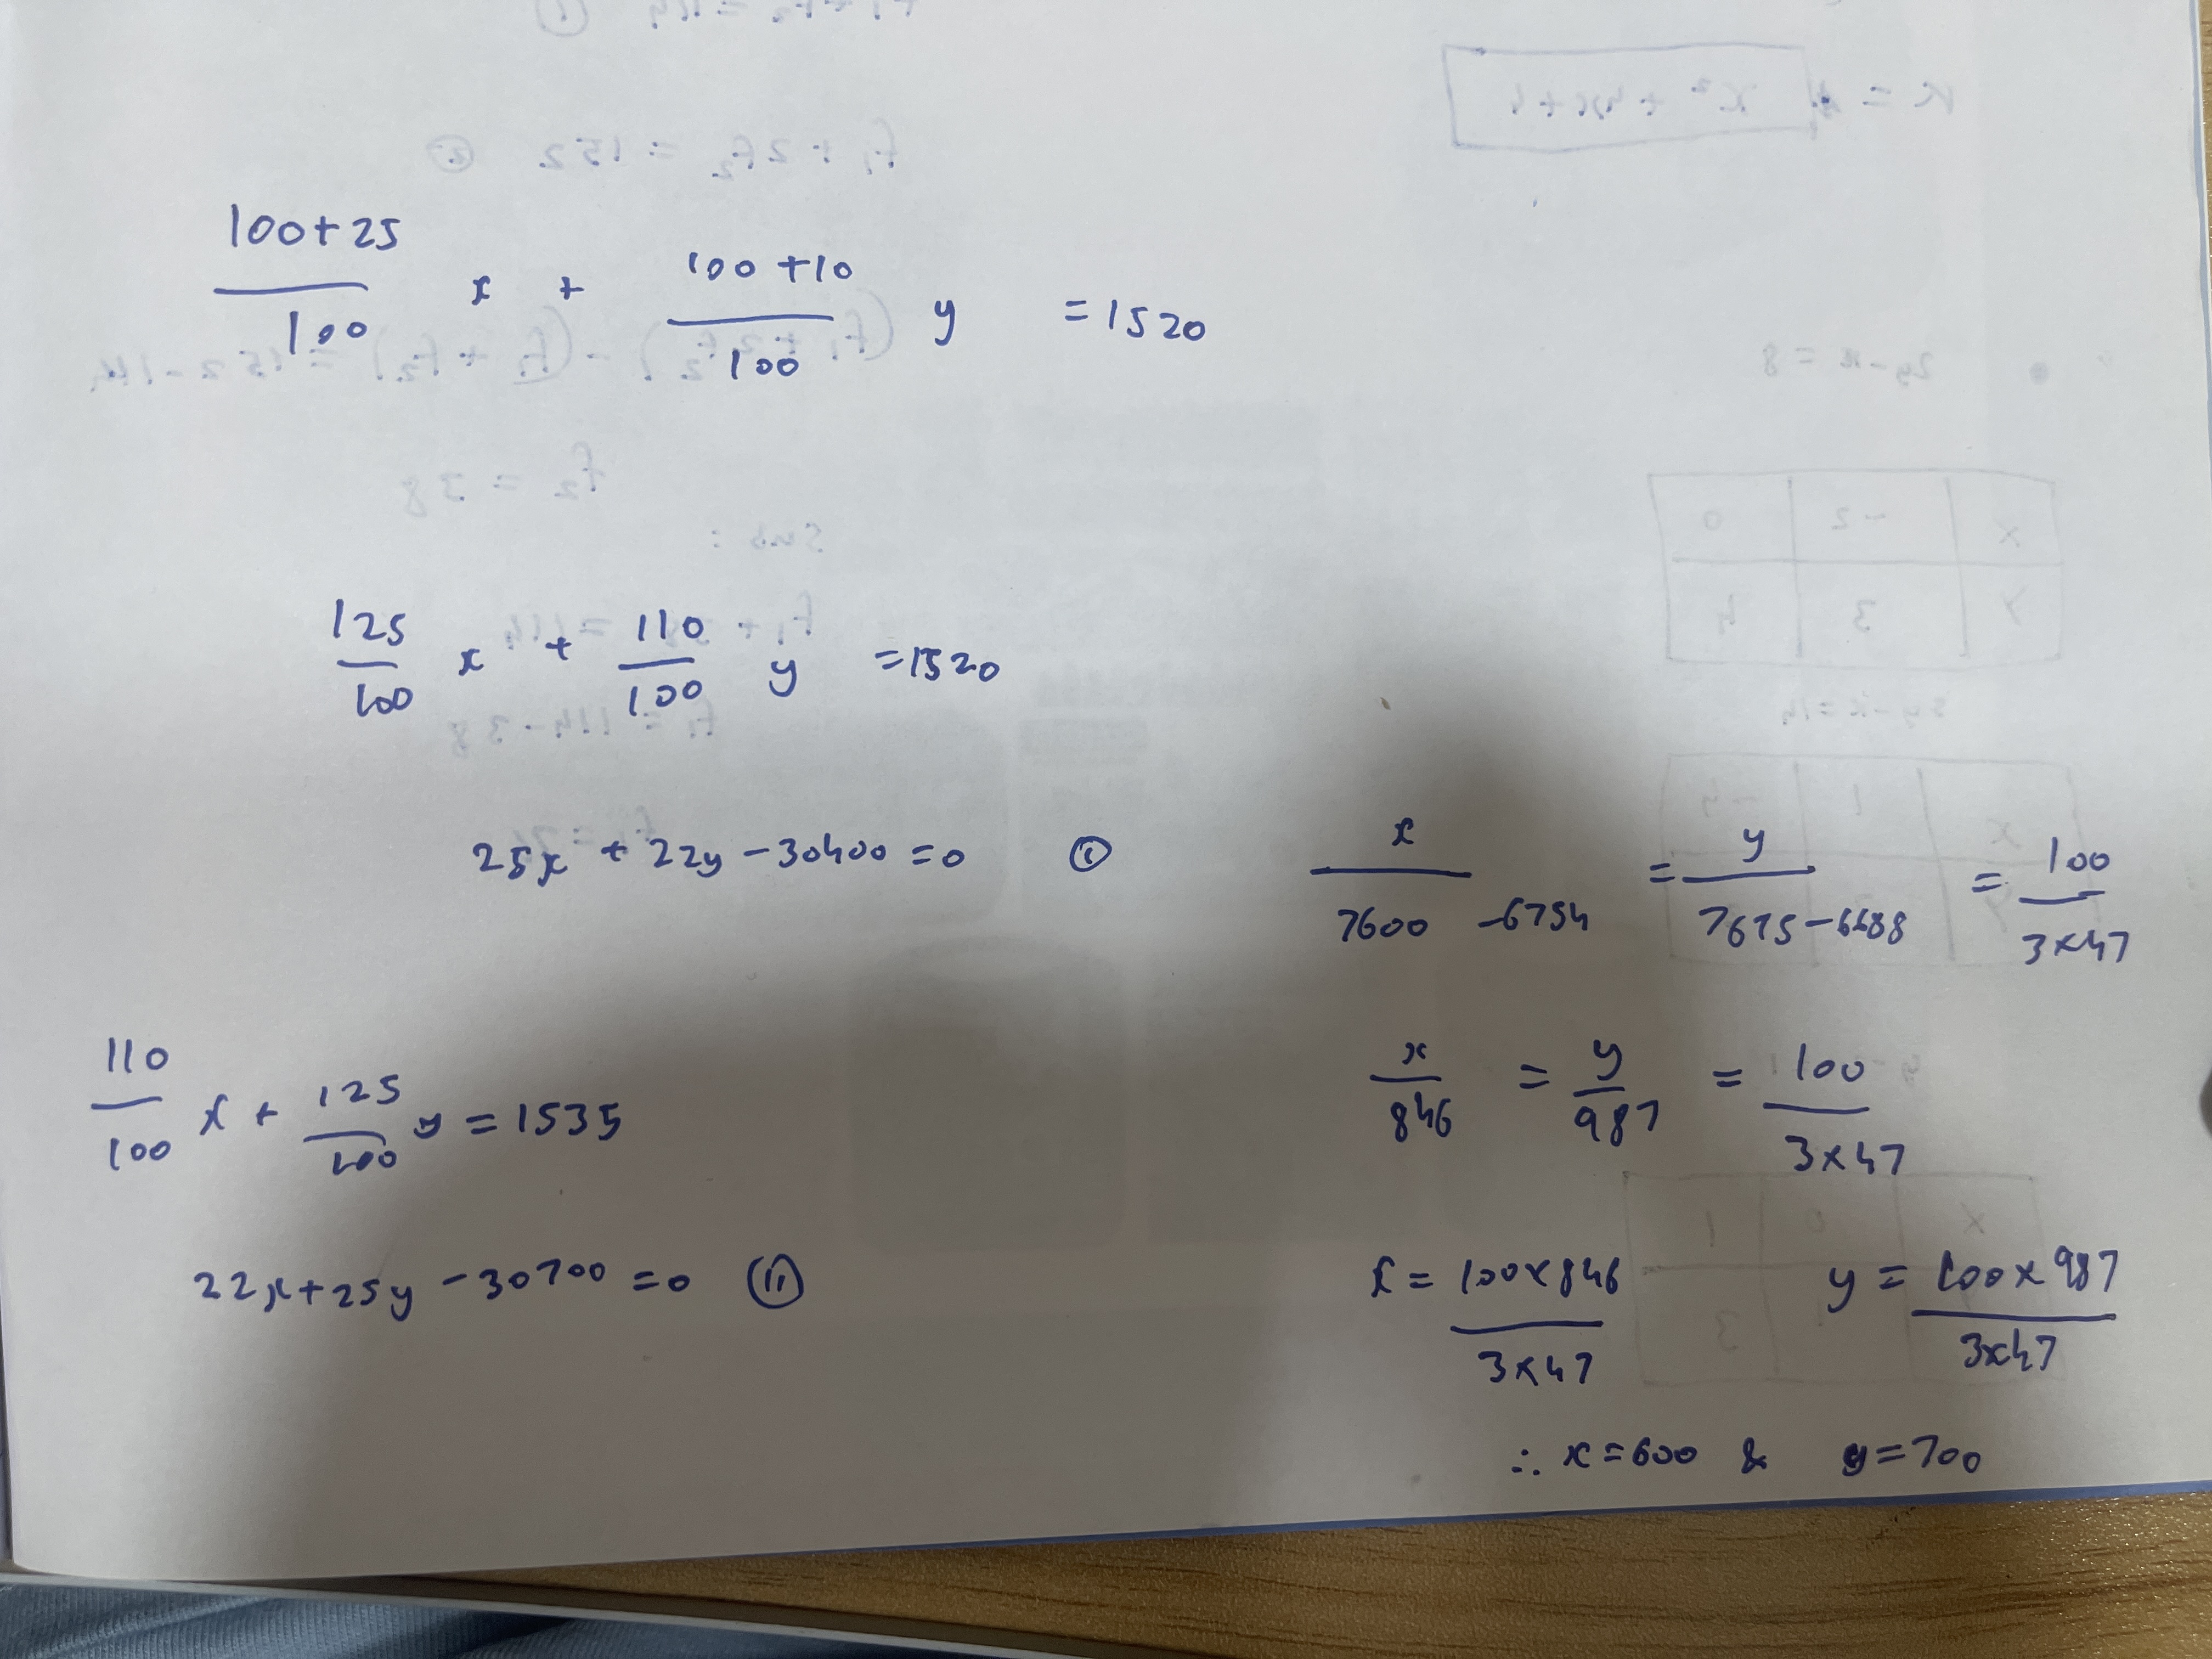 100+25/100 x + 100+10/100 y =1520
125/100 x + 110/100 y =1520
25x + 22y - 30400 = 0 (i)
110/100 x + 125/100 y = 1535
22x+25y - 30700 = 0 (ii)
x/7600 - 6754 = y/7675 - 6688 = 100/3×47
x/846 = y/987 = 100/3×47
x = 100×846/3×47 y = 100×987/3×47
∴ x=600 & y=700